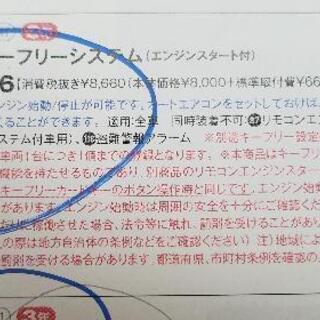 ーフリーシステム(エンジンスタート付)
6【消費税抜き¥8,660(本体価格¥8,000+標準取付費¥66
ンジン始動/停止が可能です。オートエアコンをセットしておけば、
くことができます。 適用:全車 同時装着不可:リモコンエ
ステム付車用)、盗難警報アラーム ※別途キーフリー設定
車両1台につき1個までの登録となります。※本商品はキーフリ
機能を持たせるものであり、別商品のリモコンエンジンスター
キーフリーカードキーのボタン操作時と同じです。エンジン始
があります。エンジン始動時は周囲の安全を十分にご確認く
に稼働させた場合、法令等に触れ、罰則を受けることがあり
の際は地方自治体の条例などをご確認ください 注)地域によ
罰則を受ける場合があります。都道府県、市町村条例を確認の上
3年